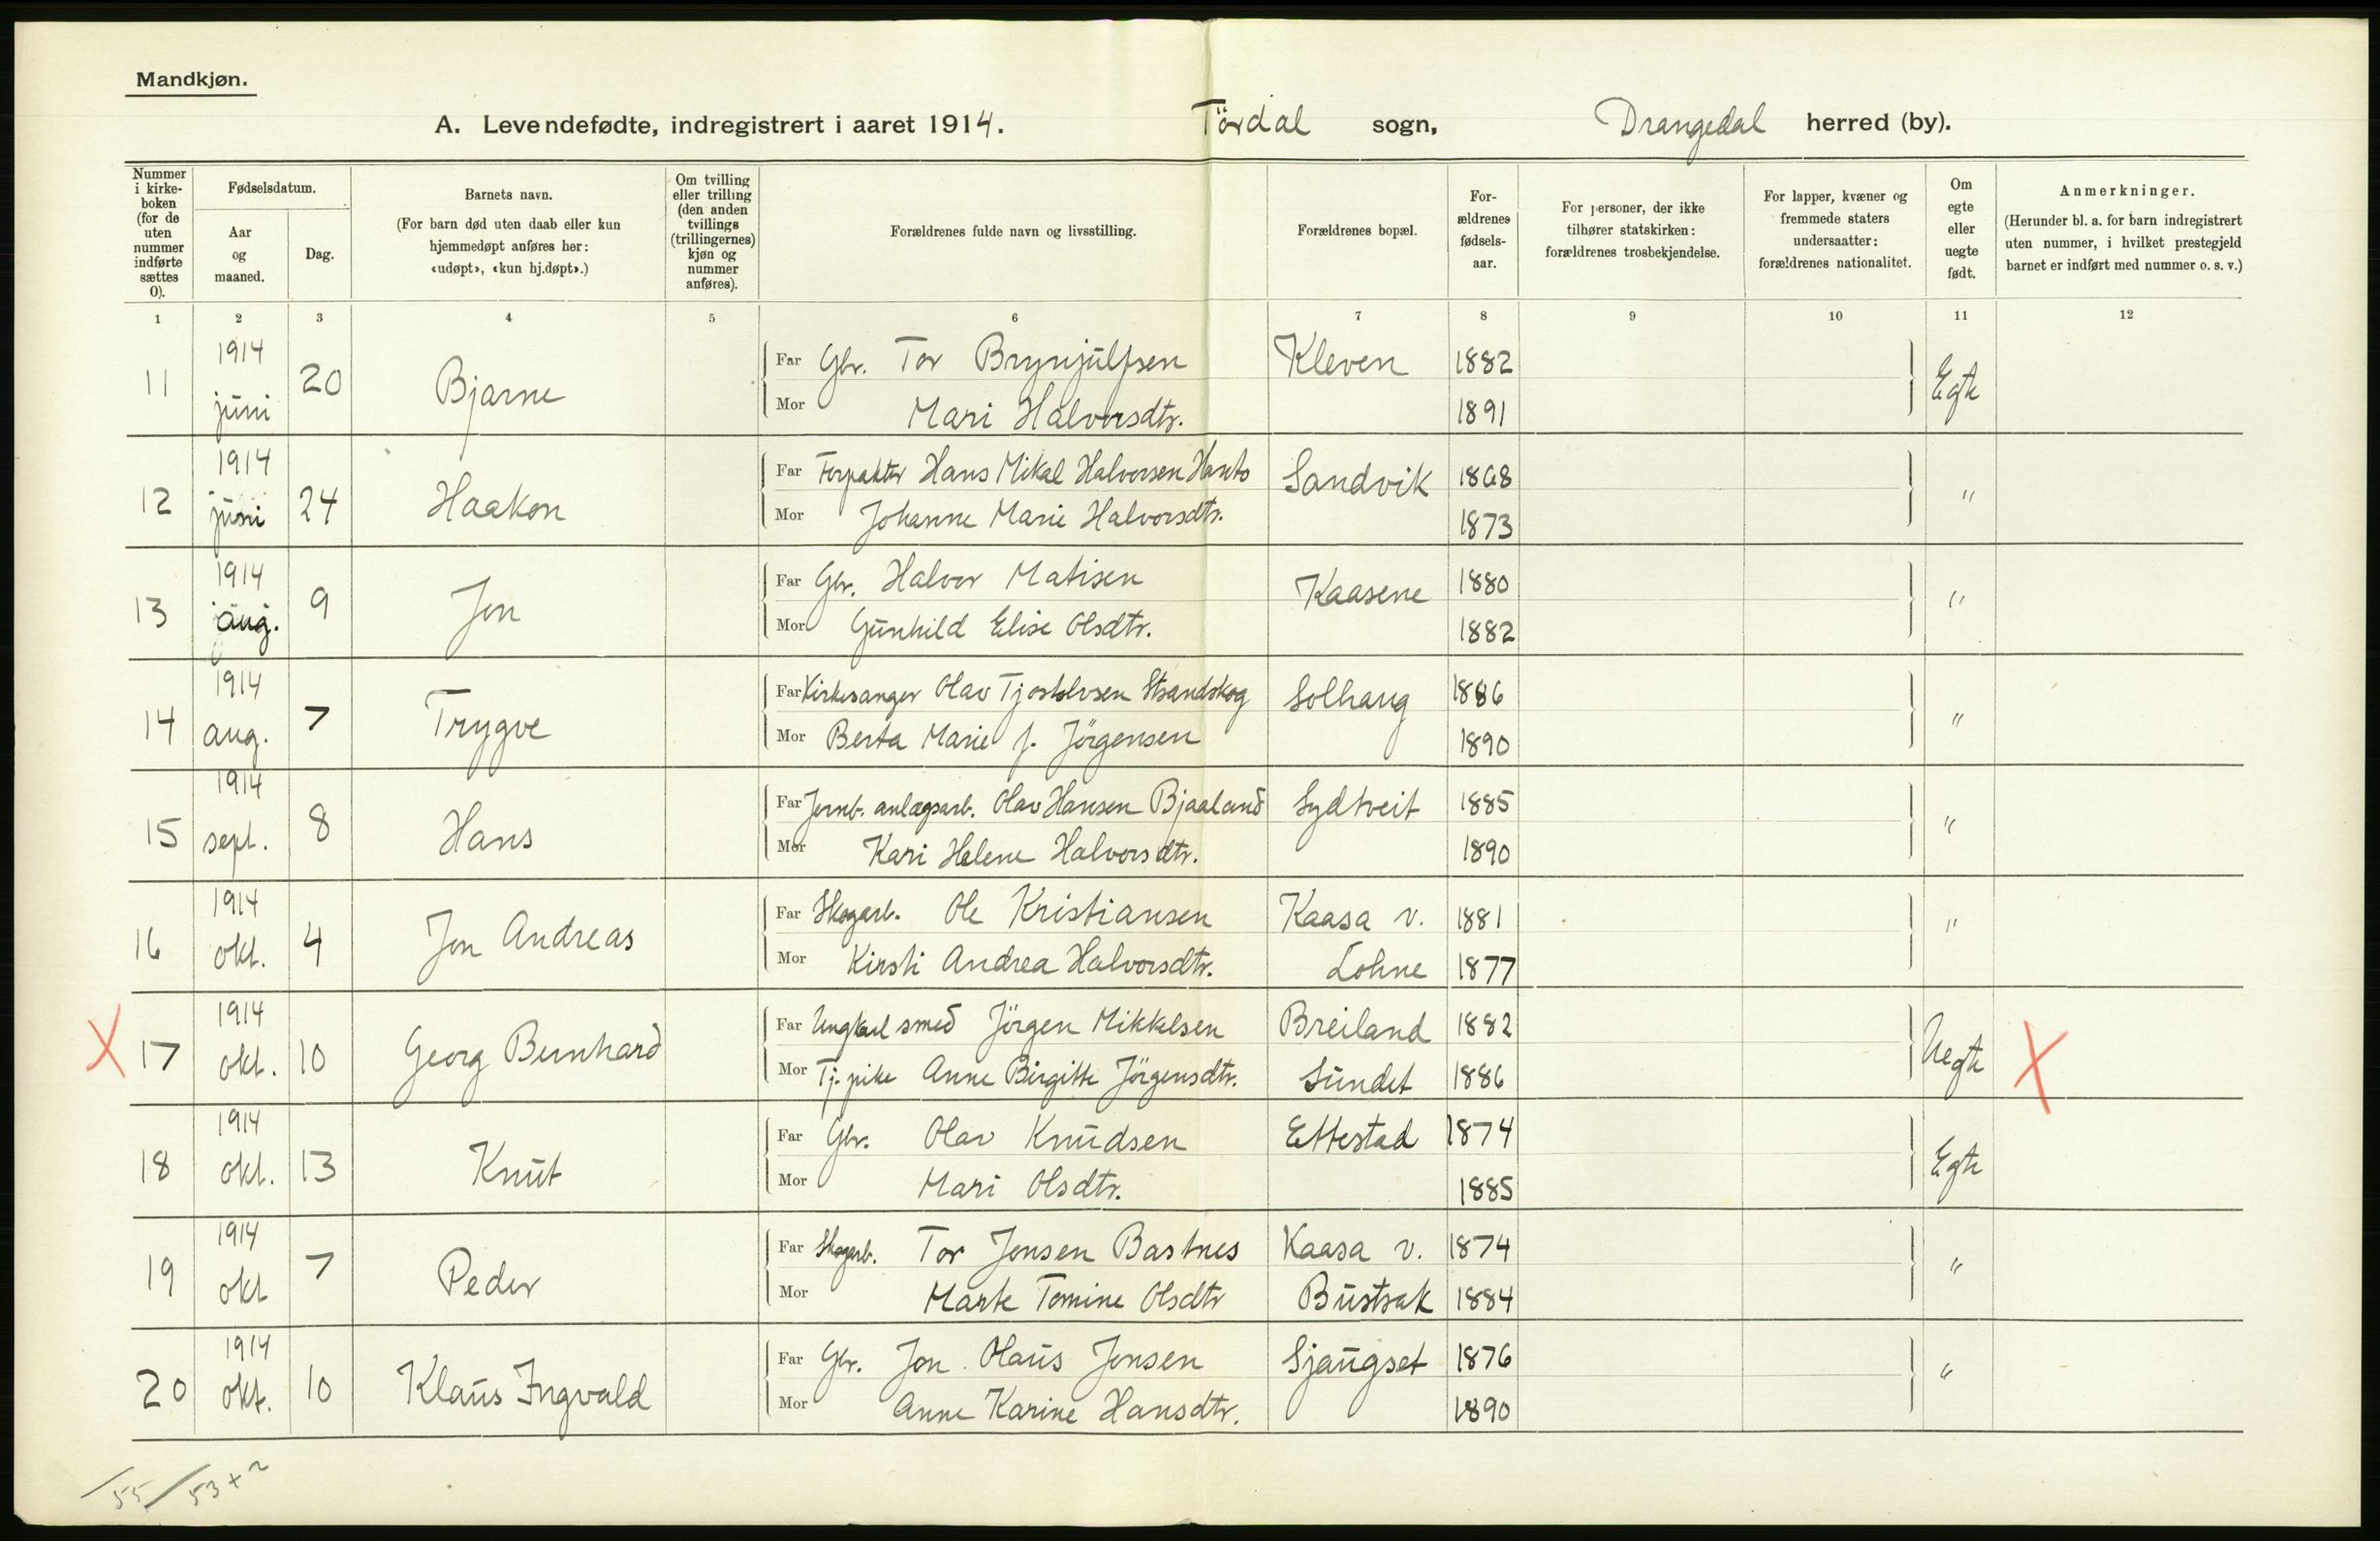 Mandkjøn.
A. Levendefødte, indregistrert i aaret 1914. Tördal sogn, Drangedal herred (by).
Nummer i kirke-boken (for de uten nummer indførte sættes 0).
Fødselsdatum.
Aar og maaned.
Dag.
Barnets navn.
(For barn død uten daab eller kun hjemmedøpt anføres her: «udøpt», «kun hj.døpt».)
Om tvilling eller trilling (den anden tvillings (trillingernes) kjøn og nummer anføres).
Forældrenes fulde navn og livsstilling.
Forældrenes bopæl.
For-ældrenes fødsels-aar.
For personer, der ikke tilhører statskirken: forældrenes trosbekjendelse.
For lapper, kvæner og fremmede staters undersaatter: forældrenes nationalitet.
Om egte eller uegte født.
Anmerkninger.
(Herunder bl. a. for barn indregistrert uten nummer, i hvilket prestegjeld barnet er indført med nummer o. s. v.)
1 2 3 4 5 6 7 8 9 10 11 12
11 1914 juni 20 Bjarne Far Gbr. Tor Brynjulfsen Kleven 1882 Egte
Mor Mari Halvorsdtr. 1891
12 1914 juni 24 Haakon Far Forpakter Hans Mikal Halvorsen Sandvik 1868 "
Mor Johanne Marie Halvorsdtr. 1873
13 1914 aug. 9 Jon Far Gbr. Halvor Matisen Kaasene 1880 "
Mor Gunhild Elise Olsdtr. 1882
14 1914 aug. 7 Trygve Far Kirkesanger Olav Tjostolvsen Strandskog Solhaug 1886 "
Mor Berta Marie f. Jörgensen 1890
15 1914 sept. 8 Hans Far Jernb. anlægsarb. Olav Hansen Bjaaland Sydtveit 1885 "
Mor Kari Helene Halvorsdtr. 1890
16 1914 okt. 4 Jon Andreas Far Skogarb. Ole Kristiansen Kaasa v. 1881 "
Mor Kirsti Andrea Halvorsdtr. Lohne 1877
X 17 1914 okt. 10 Georg Bernhard Far Ungkarl smed Jörgen Mikkelsen Breiland 1882 Uegte X
Mor Tj. pike Anne Birgitte Jörgensdtr. Sundet 1886
18 1914 okt. 13 Knut Far Gbr. Olav Knudsen Ettestad 1874 Egte
Mor Mari Olsdtr. 1885
19 1914 okt 7 Peder Far Skogarb. Tor Jensen Bastnes Kaasa v. 1874 "
Mor Marte Tomine Olsdtr Bustrak 1884
20 1914 okt. 10 Klaus Ingvald Far Gbr. Jon Olaus Jensen Sjaugset 1876 "
Mor Anne Karine Hansdtr. 1890
/55/53+2